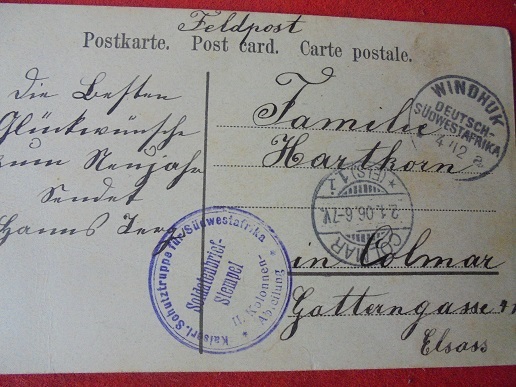 Feldpost
Postkarte. Post card. Carte postale.
Die besten
Glückwünsche
zum Neujahr
Sendet
Hanns
Familie
Hartkorn
in Colmar
Gatterngasse
Elsass
WINDHUK
DEUTSCH-
SÜDWESTAFRIKA
COLMAR
(ELS) 1.
2.1.06.6-7V.
Kaiserl. Schutztruppe für Südwestafrika
Soldatenbrief-
Stempel
II. Kolonnen-
Abteilung